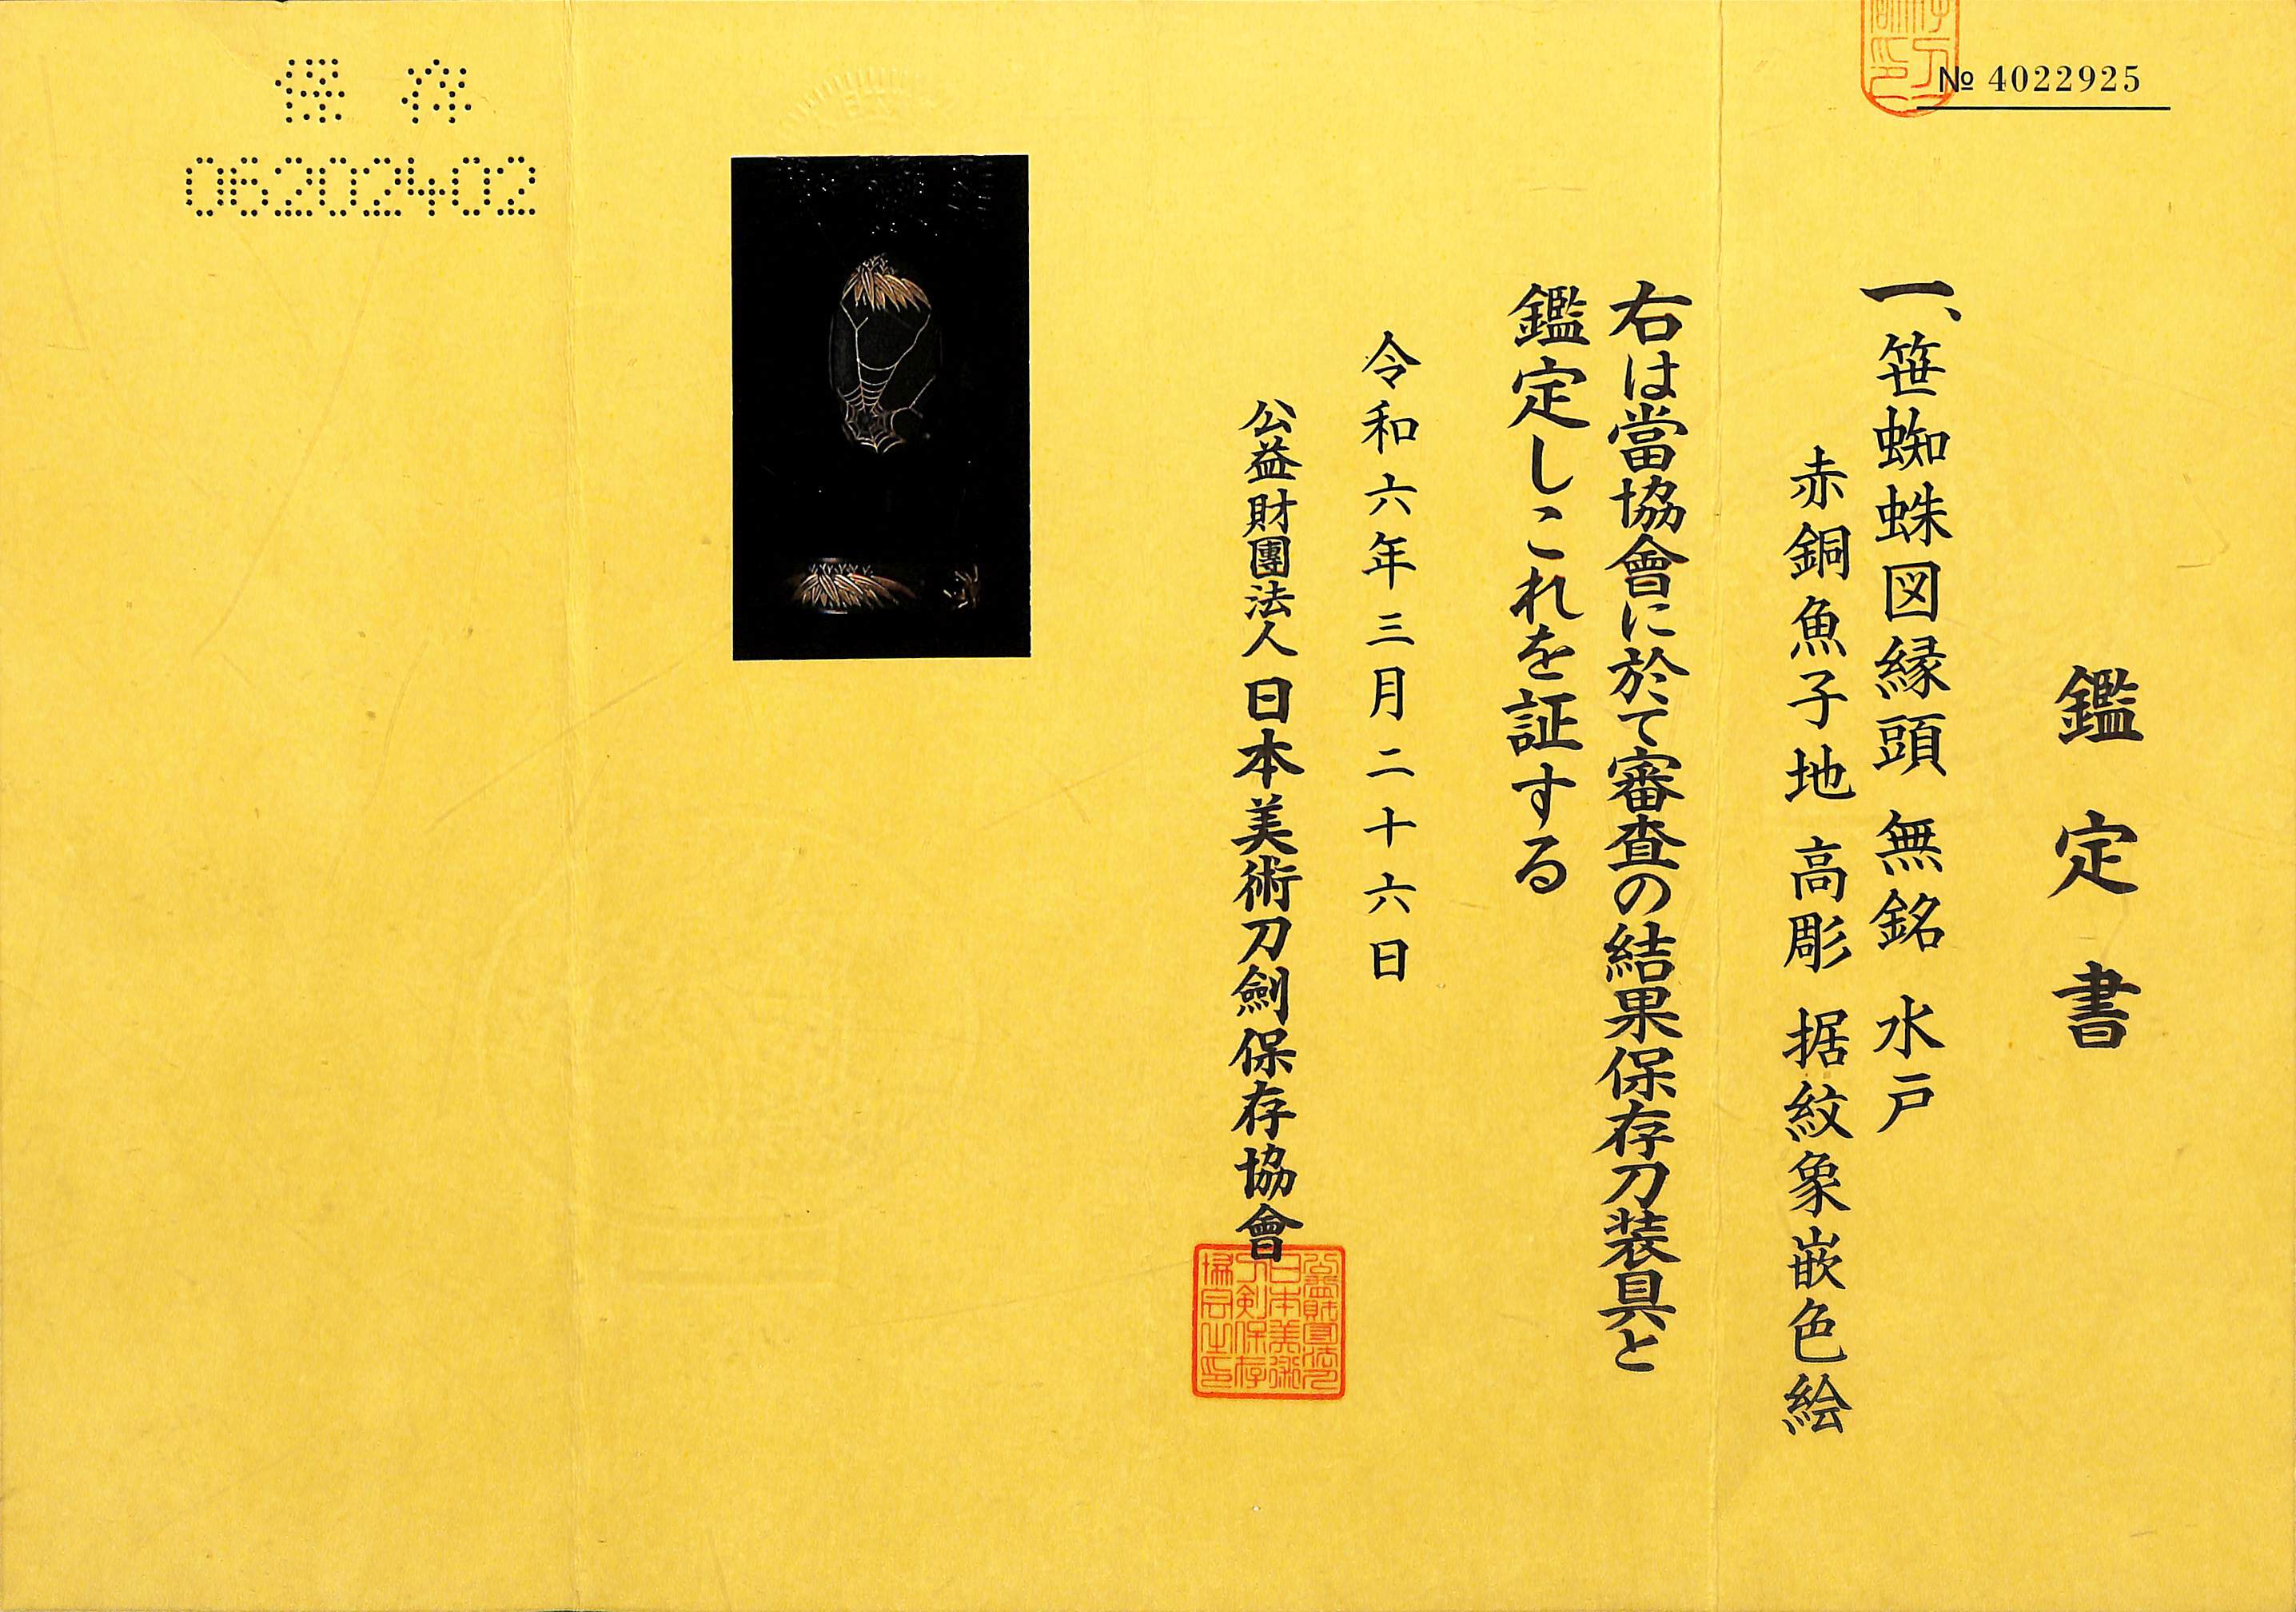 № 4022925
鑑定書
一、笹蜘蛛図縁頭 無銘 水戸
赤銅魚子地 高彫 据紋象嵌色絵
右は當協會に於て審査の結果保存刀装具と
鑑定しこれを証する
令和六年三月二十六日
公益財團法人 日本美術刀劍保存協會
保存
06202402